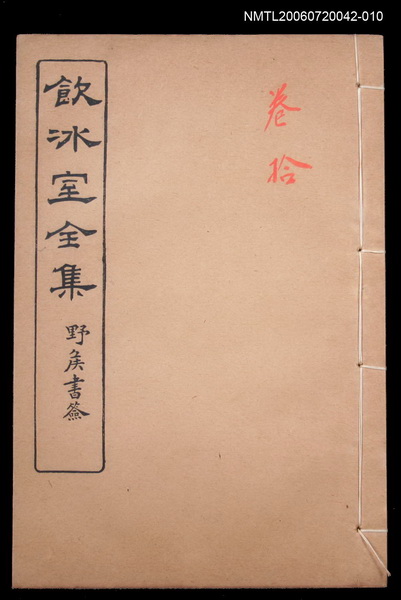 NMTL20060720042-010
卷拾
飲冰室全集
野侯書簽